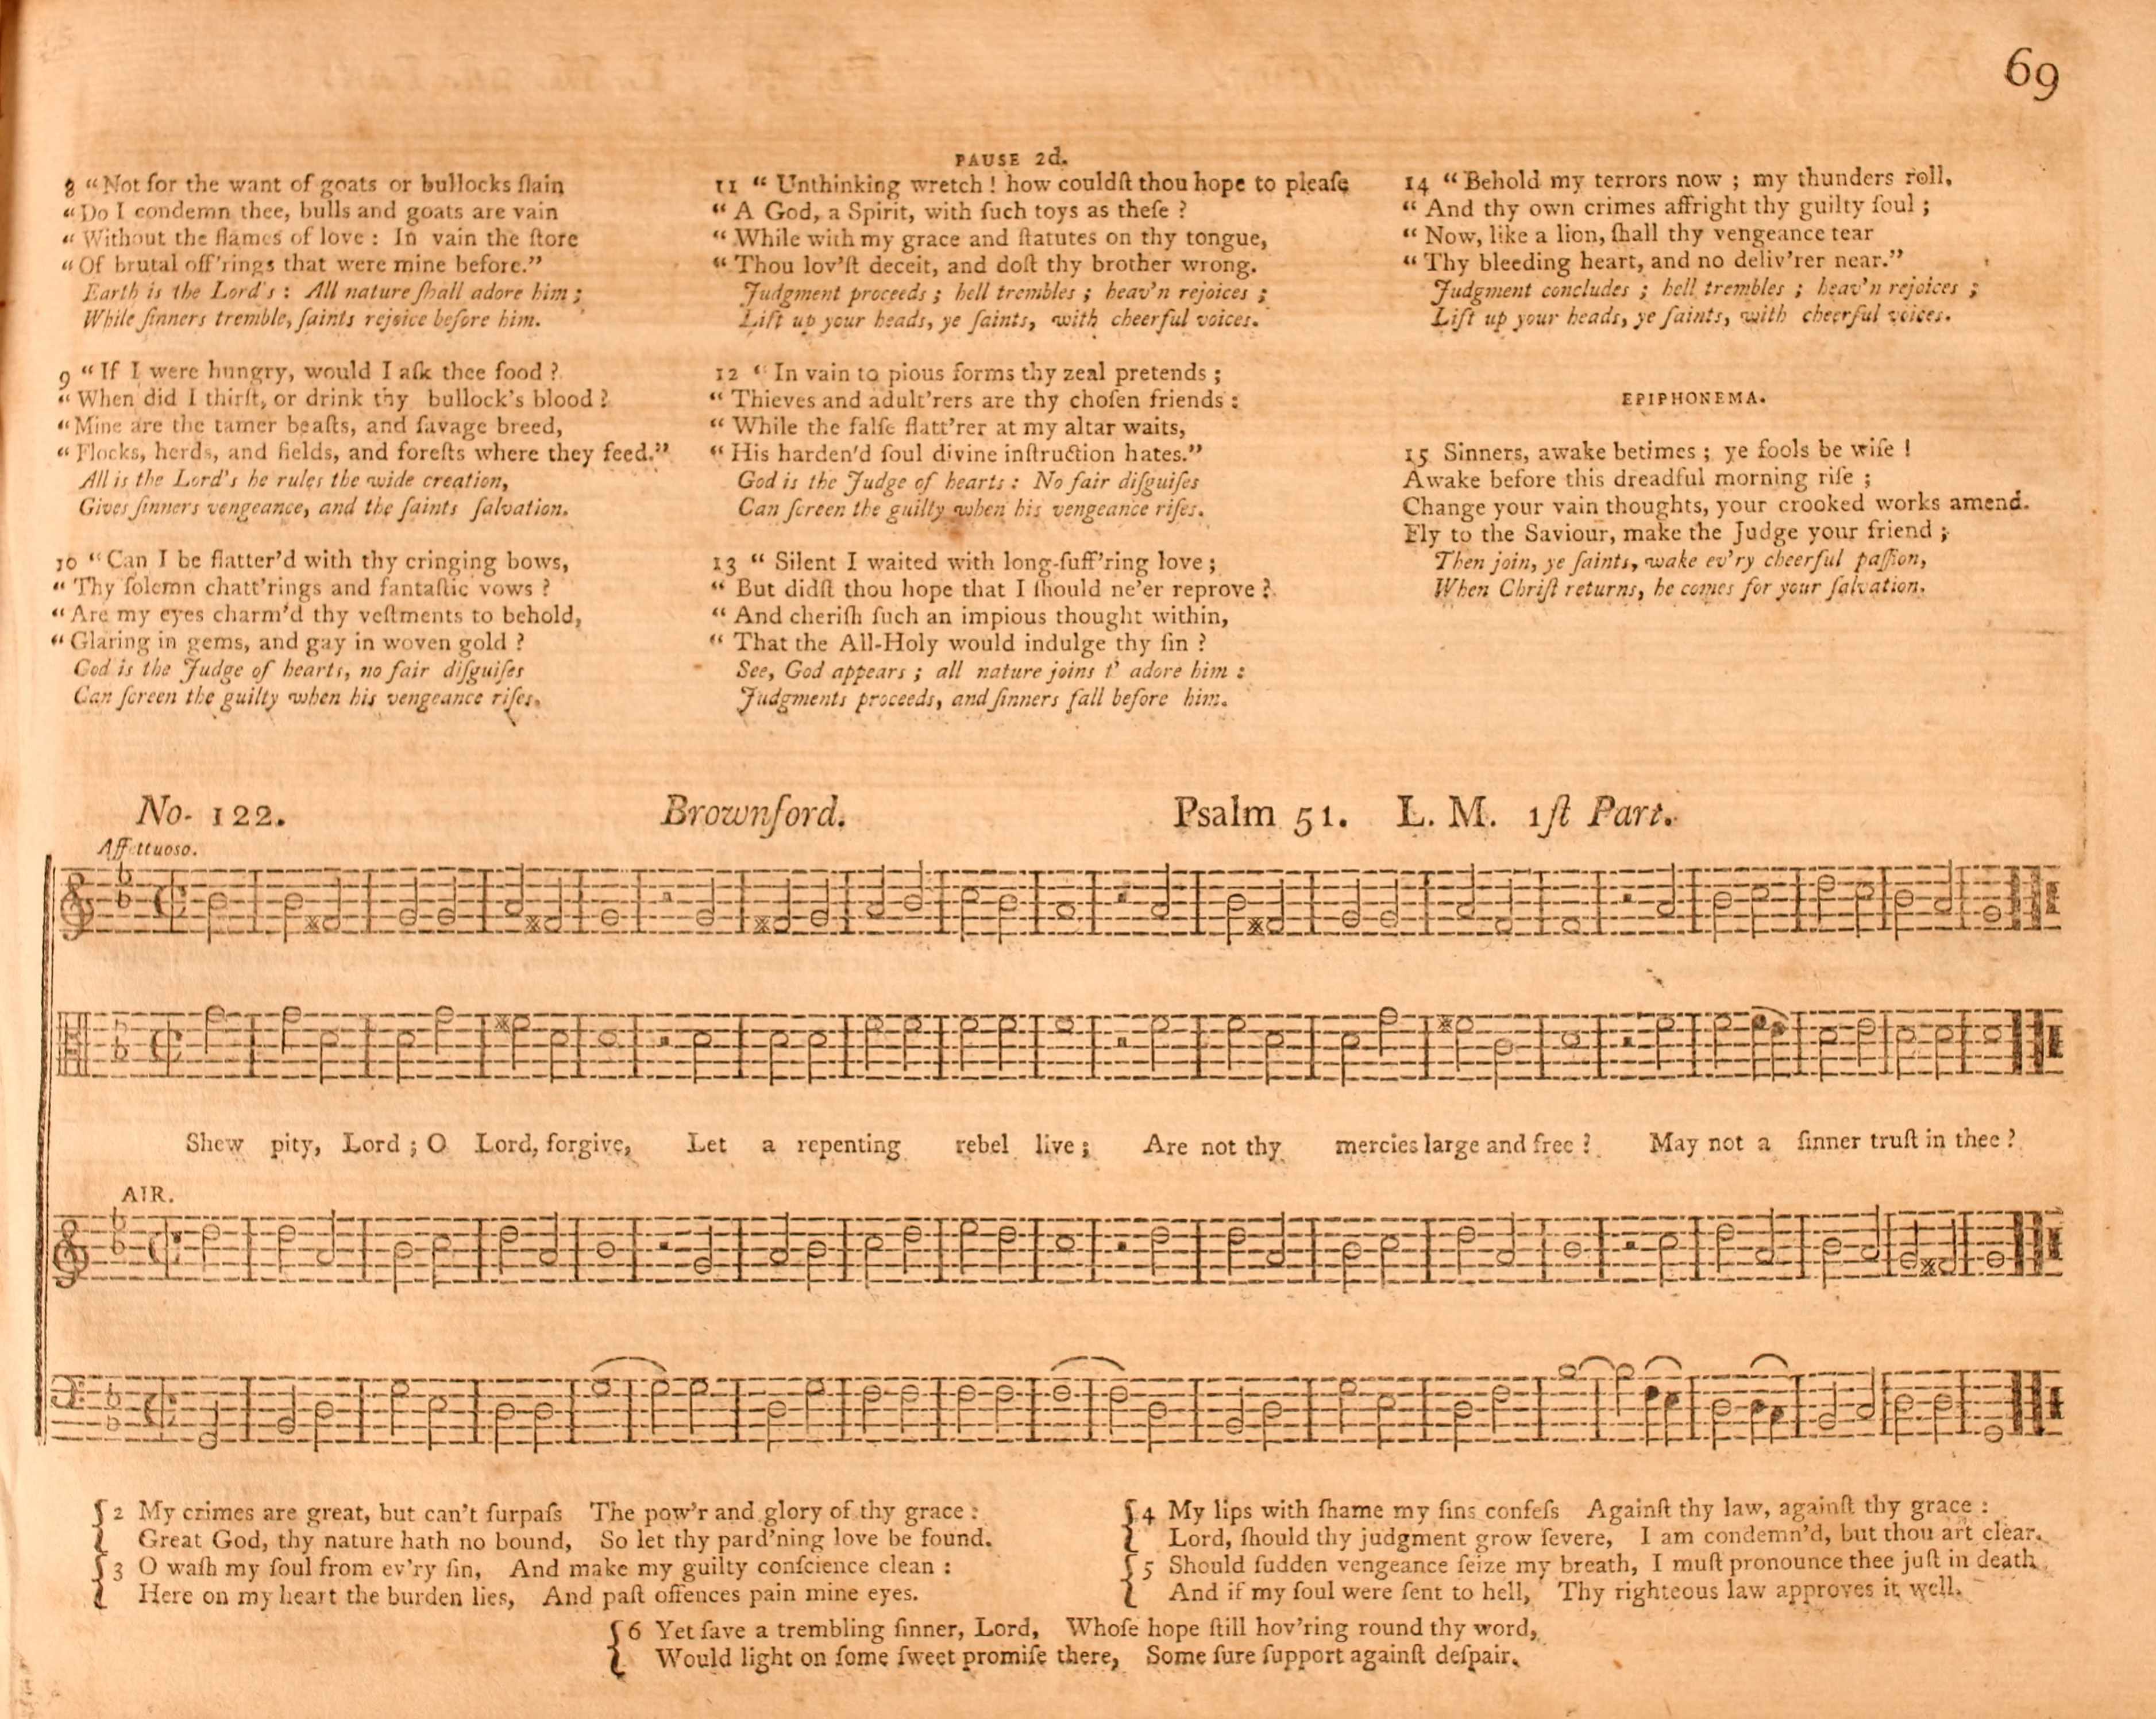 69
8 “Not for the want of goats or bullocks ſlain
“Do I condemn thee, bulls and goats are vain
“Without the flames of love : In vain the ſtore
“Of brutal off'rings that were mine before.”
Earth is the Lord's : All nature ſhall adore him ;
While ſinners tremble, ſaints rejoice before him.
9 “If I were hungry, would I aſk thee food ?
“When did I thirſt, or drink thy bullock's blood ?
“Mine are the tamer beaſts, and ſavage breed,
“Flocks, herds, and fields, and foreſts where they feed.”
All is the Lord's he rules the wide creation,
Gives ſinners vengeance, and the ſaints ſalvation.
10 “Can I be flatter'd with thy cringing bows,
“Thy ſolemn chatt'rings and fantaſtic vows ?
“Are my eyes charm'd thy veſtments to behold,
“Glaring in gems, and gay in woven gold ?
God is the Judge of hearts, no fair diſguiſes
Can ſcreen the guilty when his vengeance riſes.
PAUSE 2d.
11 “ Unthinking wretch ! how couldſt thou hope to pleaſe
“ A God, a Spirit, with ſuch toys as theſe ?
“ While with my grace and ſtatutes on thy tongue,
“ Thou lov'ſt deceit, and doſt thy brother wrong.
Judgment proceeds ; hell trembles ; heav'n rejoices ;
Lift up your heads, ye ſaints, with cheerful voices.
12 “ In vain to pious forms thy zeal pretends ;
“ Thieves and adult'rers are thy choſen friends :
“ While the falſe flatt'rer at my altar waits,
“ His harden'd ſoul divine inſtruction hates.”
God is the Judge of hearts : No fair diſguiſes
Can ſcreen the guilty when his vengeance riſes.
13 “ Silent I waited with long-ſuff'ring love ;
“ But didſt thou hope that I ſhould ne'er reprove ?
“ And cheriſh ſuch an impious thought within,
“ That the All-Holy would indulge thy ſin ?
See, God appears ; all nature joins t' adore him :
Judgments proceeds, and ſinners fall before him.
14 “ Behold my terrors now ; my thunders roll,
“ And thy own crimes affright thy guilty ſoul ;
“ Now, like a lion, ſhall thy vengeance tear
“ Thy bleeding heart, and no deliv'rer near.”
Judgment concludes ; hell trembles ; heav'n rejoices ;
Lift up your heads, ye ſaints, with cheerful voices.
EPIPHONEMA.
15 Sinners, awake betimes ; ye fools be wiſe !
Awake before this dreadful morning riſe ;
Change your vain thoughts, your crooked works amend.
Fly to the Saviour, make the Judge your friend ;
Then join, ye ſaints, wake ev'ry cheerful paſſion,
When Chriſt returns, he comes for your ſalvation.
No. 122. Brownſord. Psalm 51. L. M. 1ſt Part.
Affettuoso.
Shew pity, Lord ; O Lord, forgive, Let a repenting rebel live ; Are not thy mercies large and free ? May not a ſinner truſt in thee ?
AIR.
2 My crimes are great, but can't ſurpaſs The pow'r and glory of thy grace :
Great God, thy nature hath no bound, So let thy pard'ning love be found.
3 O waſh my ſoul from ev'ry ſin, And make my guilty conſcience clean :
Here on my heart the burden lies, And paſt offences pain mine eyes.
4 My lips with ſhame my ſins confeſs Againſt thy law, againſt thy grace :
Lord, ſhould thy judgment grow ſevere, I am condemn'd, but thou art clear.
5 Should ſudden vengeance ſeize my breath, I muſt pronounce thee juſt in death
And if my ſoul were ſent to hell, Thy righteous law approves it well.
6 Yet ſave a trembling ſinner, Lord, Whoſe hope ſtill hov'ring round thy word,
Would light on ſome ſweet promiſe there, Some ſure ſupport againſt deſpair.